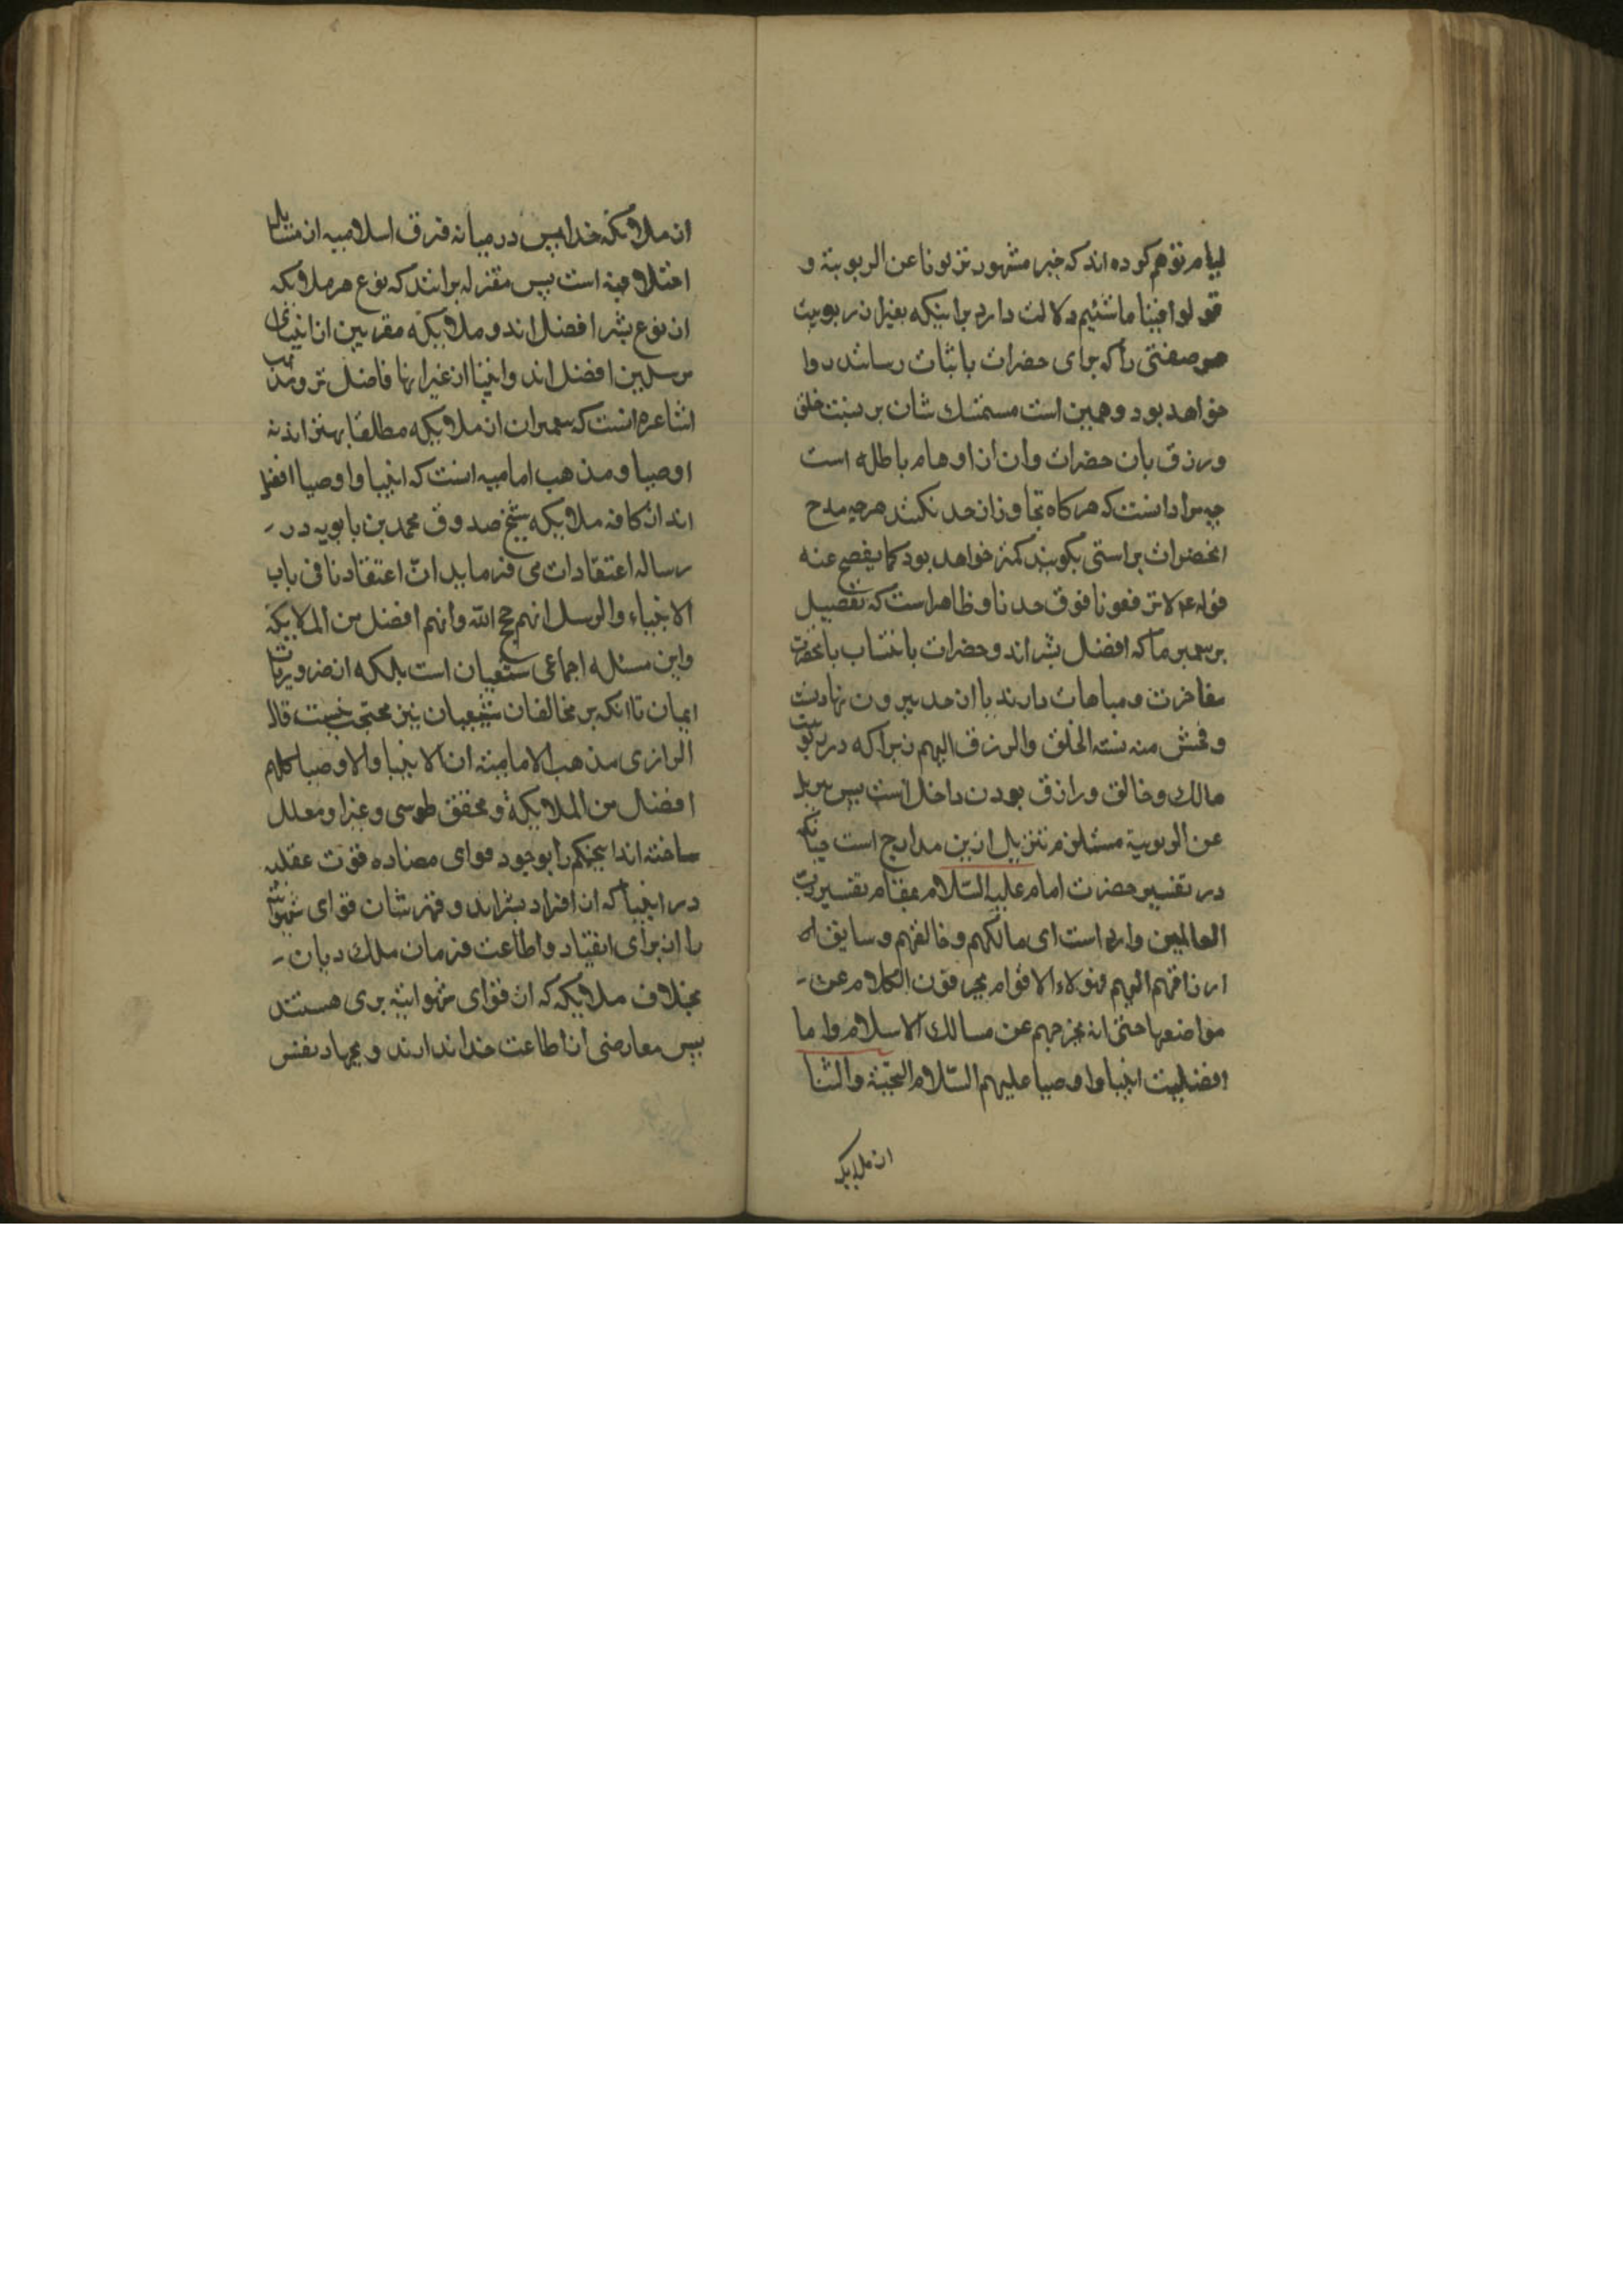 لیام توهم کرده اند که خبر مشهور نزلونا عن الربوبیة و
قولوا فینا ما شئتم دلالت دارد بر اینکه بغیر از ربوبیت
هر صفتی را که برای حضرات باثبات رسانند روا
خواهد بود و همین است مستمسک شان بر نسبت خلق
ورزق بان حضرات وان از اوهام باطله است
چه مراد انست که هر کاه تجاوز از حد نکنند هر چه مدح
انحضرات براستی بکویند کمتر خواهد بود کما یفصح عنه
قوله ع لا ترفعونا فوق حدنا و ظاهر است که تفضیل
بر پیمبر ما که افضل بشر اند و حضرات بانتساب بانحضرت
مفاخرت و مباهات دارند پا از حد بیرون نهادنست
و افحش منه نسبة الخلق والرزق الیهم زیرا که در ربوبیت
مالک و خالق و رازق بودن داخل است پس تنزیل
عن الربوبیة مستلزم تنزیل ازین مدارج است چنانکه
در تفسیر حضرت امام علیه السّلام بمقام تفسیر ربّ
العالمین وارد است ای مالکهم و خالقهم و سایق
ارزاقهم الیهم فهولاء الاقوام یحرفون الکلام عن
مواضعها حتی انه یخرجهم عن مسالک الاسلام و اما
افضلیت انبیا و اوصیا علیهم السّلام التحیّة والثنا
از ملایکه
از ملایکه خدا پس در میانه فرق اسلامیه از مسایل
اختلافیه است پس معتزله برانند که نوع هر ملایکه
از نوع بشر افضل اند و ملایکه مقربین از انبیای
مرسلین افضل اند و انبیا از غیر انها فاضل تر و مذهب
اشاعره انست که پیمبران از ملایکه مطلقا بهتر اند نه
اوصیا و مذهب امامیه انست که انبیا و اوصیا افضل
اند از کافه ملایکه شیخ صدوق محمد بن بابویه در
رساله اعتقادات می فرماید انّ اعتقادنا فی باب
الانبیاء والرسل انهم حجج الله وانهم افضل من الملایکة
و این مسئله اجماعی شیعیان است بلکه از ضروریات
ایمان تا انکه بر مخالفان شیعیان نیز محتجب نیست قال
الرازی مذهب الامامیّة ان الانبیا والاوصیا کلهم
افضل من الملایکة و محقق طوسی و غیر او معلل
ساخته اند اینحکم را بوجود قوای مضاده قوت عقلیه
در انبیا که از افراد بشر اند و قهر شان قوای شهوانیه
را از برای انقیاد و اطاعت فرمان ملک دیان
بخلاف ملایکه که از قوای شهوانیه بری هستند
پس معارضی از اطاعت خدا ندارند و بجهاد نفس